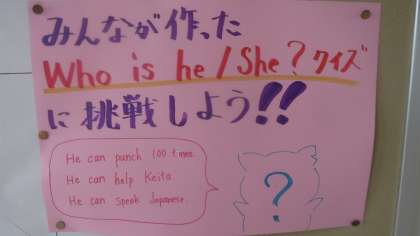 みんなが作った
Who is he/She? クイズ
に挑戦しよう!!
He can punch 100 times.
He can help Keita.
He can speak Japanese.
?